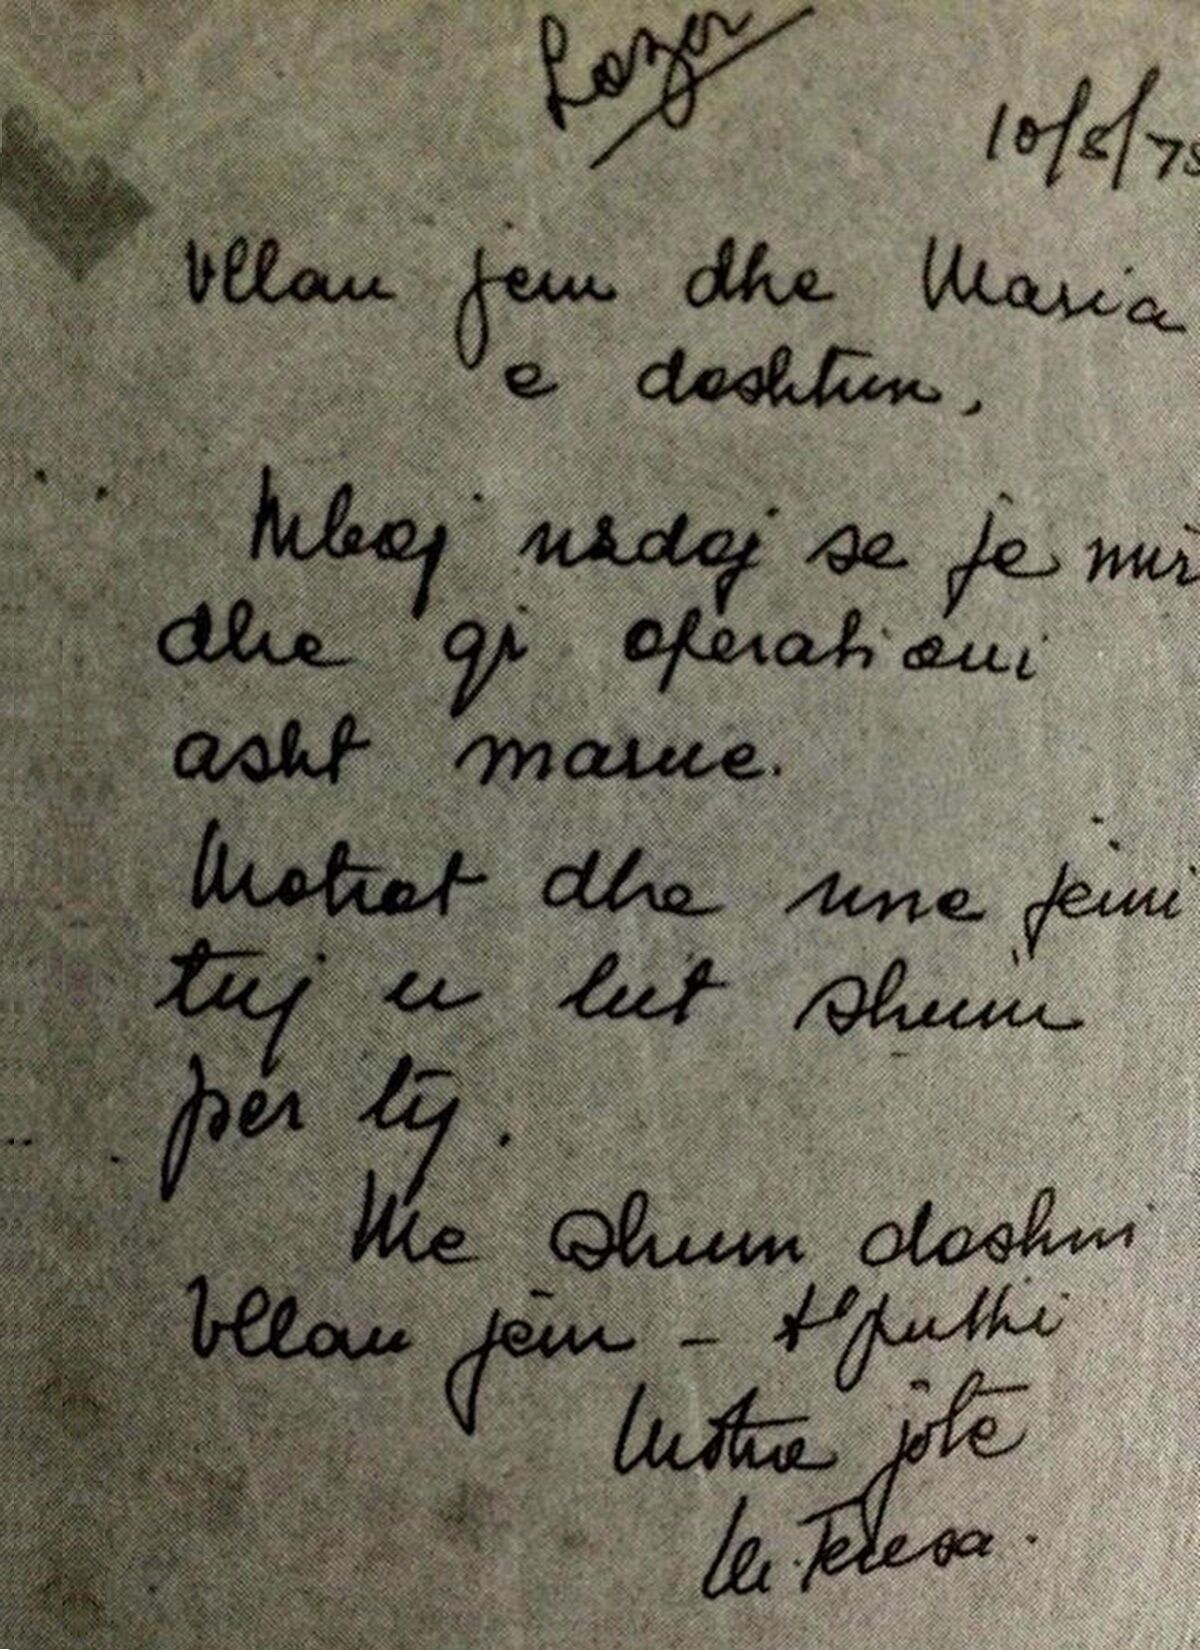 Lazar
10/8/78
Vllau jem dhe Maria
e dashtun,
Mbaj nsdaj se je mir
dhe qi operationi
asht marue.
Motrat dhe une jemi
tuj u lut shum
per tij.
Me shum dashni
Vllau jem - t'puthi
Motra jote
M. Teresa.